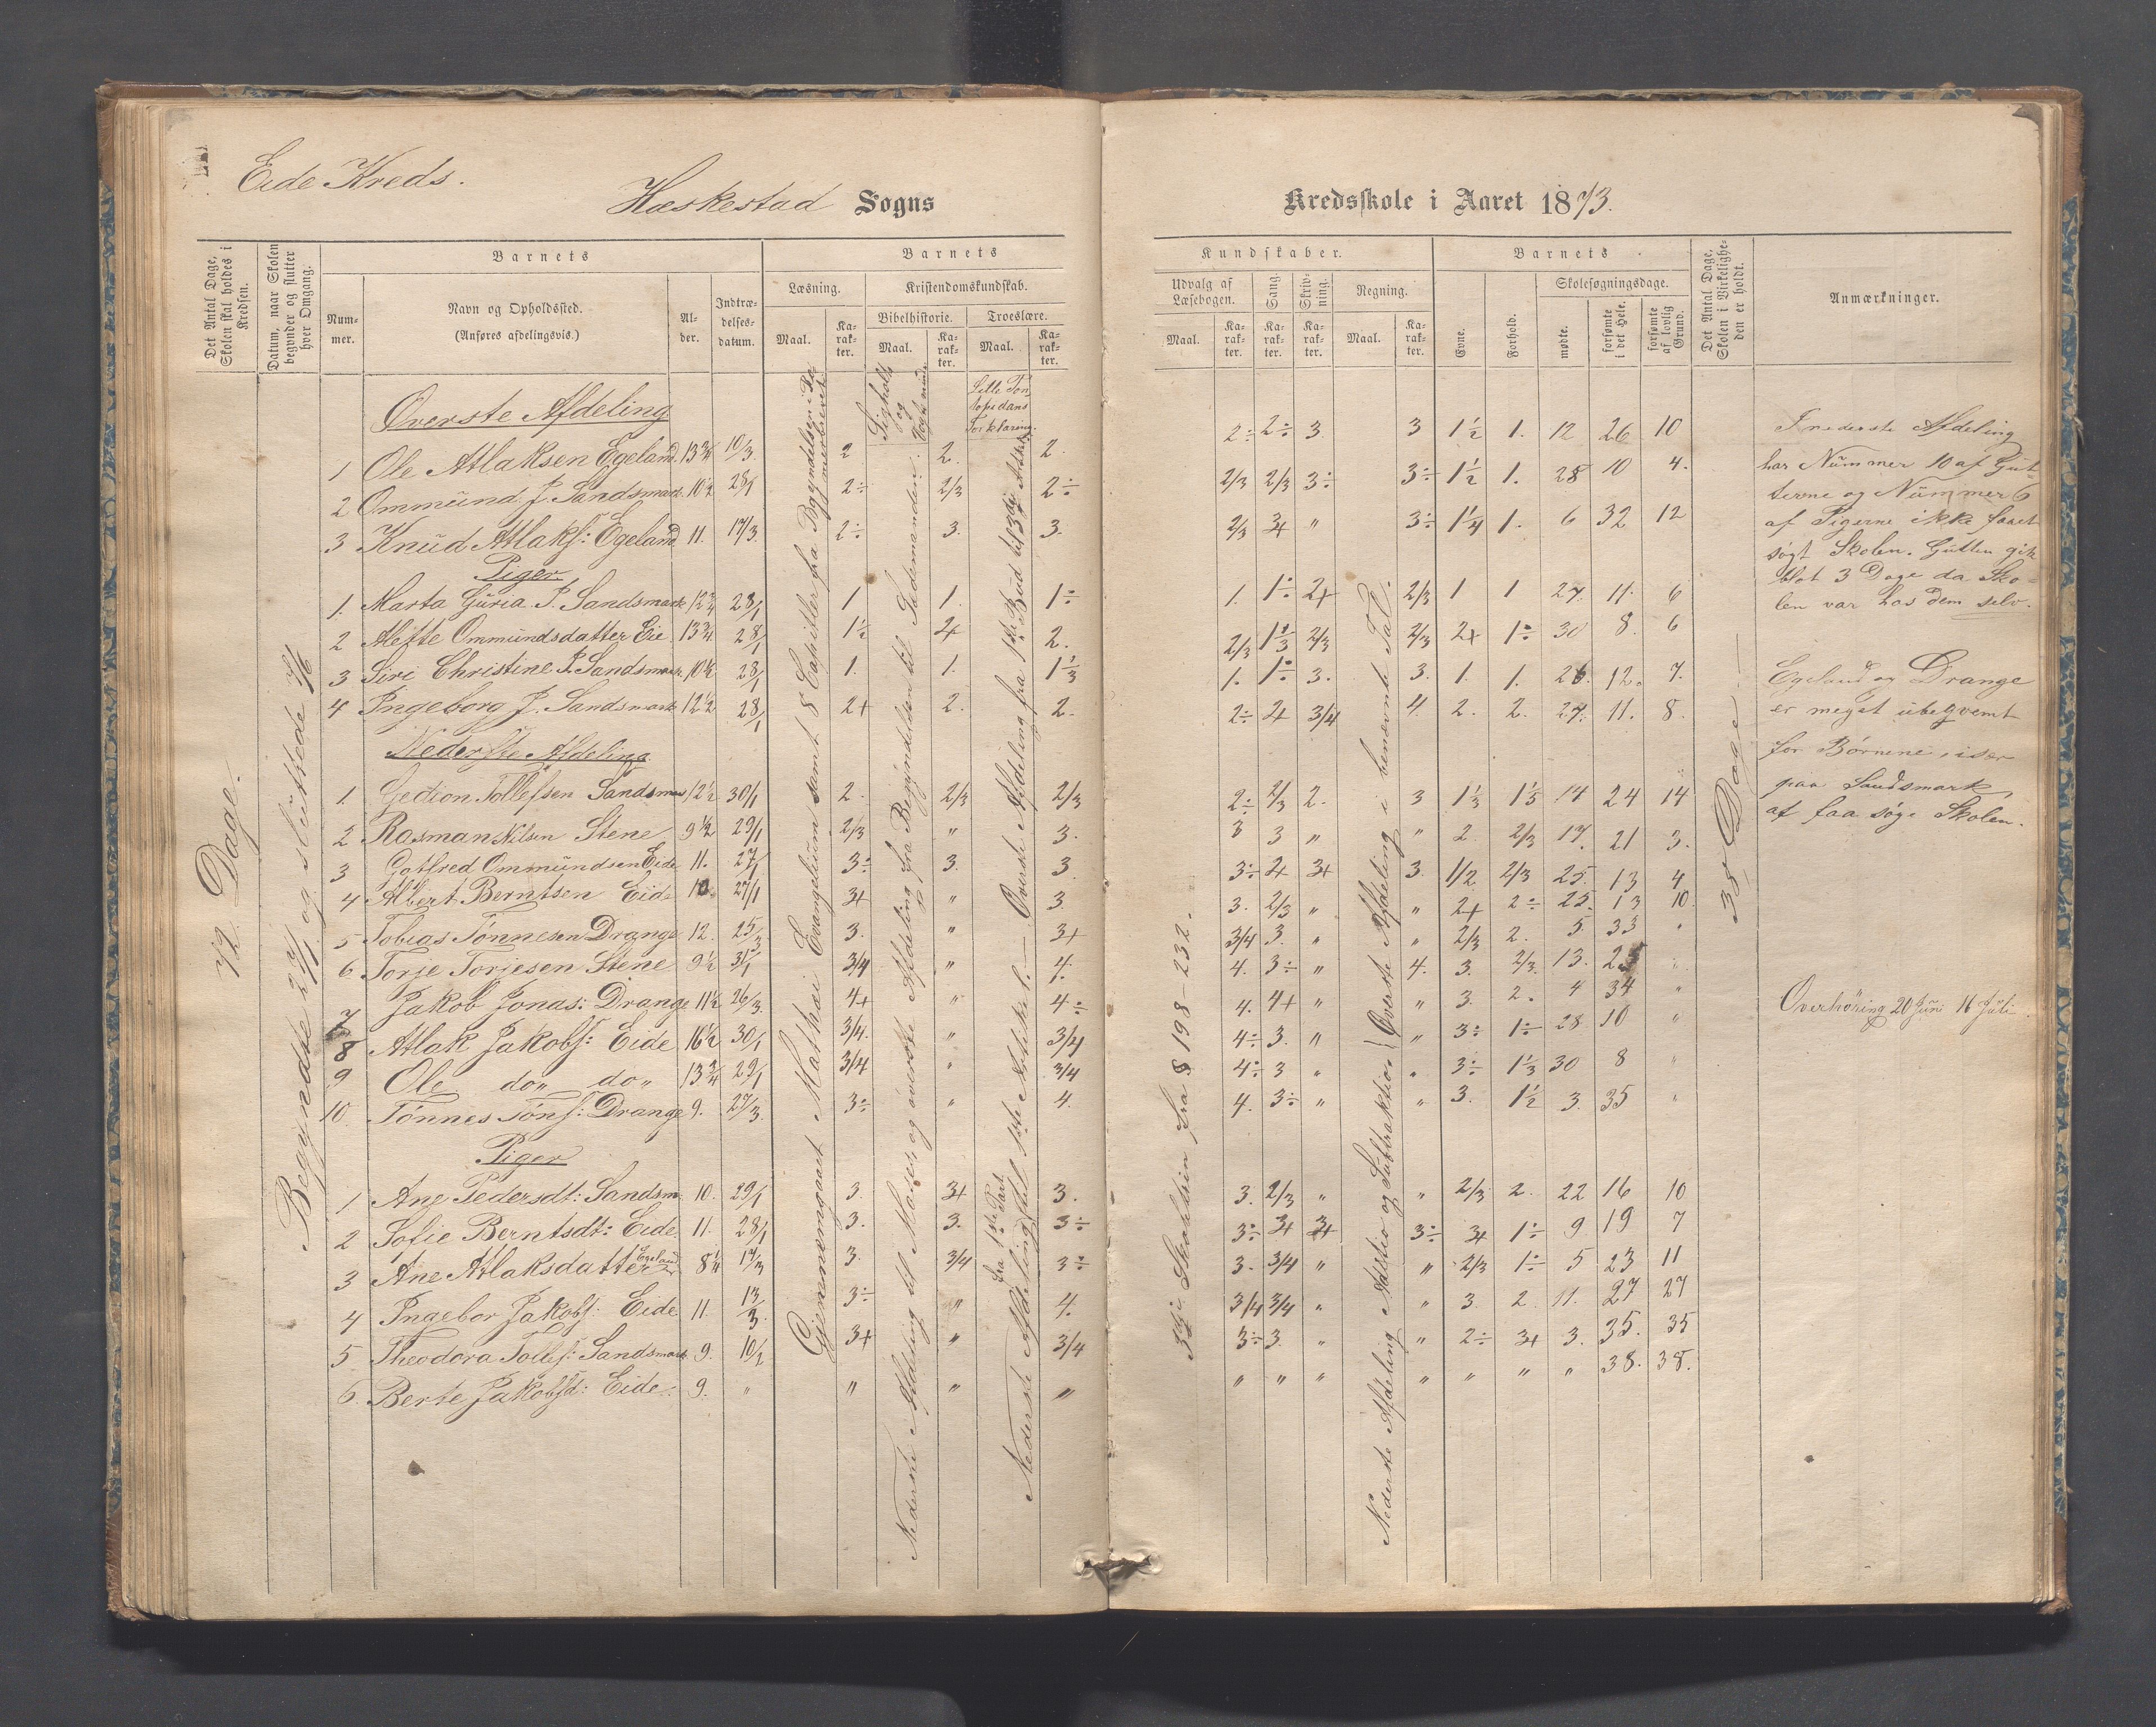 Eide Kreds.
Hæskestad Sogns
Kredsskole i Aaret 1873.
Det Antal Dage, Skolen skal holdes i Kredsen.
Datum, naar Skolen begynder og slutter hver Omgang.
Barnets
Nummer.
Navn og Opholdssted.
(Anføres afdelingsvis.)
Alder.
Indtrædelsesdatum.
Barnets
Læsning.
Maal.
Karakter.
Kristendomskundskab.
Bibelhistorie.
Maal.
Karakter.
Troeslære.
Maal.
Karakter.
Kundskaber.
Udvalg af Læsebogen.
Maal.
Karakter.
Sang.
Karakter.
Skrivning.
Karakter.
Regning.
Maal.
Karakter.
Barnets
Evne.
Forhold.
Skolesøgningsdage.
mødte.
forsømte i det Hele.
forsømte af lovlig Grund.
Det Antal Dage, Skolen i Virkeligheden er holdt.
Anmærkninger.
72 Dage.
Begyndte 27/1 og sluttede
38 Dage
Øverste Afdeling
1 Ole Atlaksen Egeland 13 3/4 10/3. 2 2. 2. 2÷ 2÷ 3. 3 1 1/2 1. 12 26 10
2 Ommund J. Sandsmark 10 1/2 28/1 2÷ 2/3 2÷ 2/3 2/3 3÷ 3÷ 1 1/2 1. 28 10 4.
3 Knud Atlaks: Egeland 11. 17/3. 2÷ 3. 3. 2/3 3+ " 3÷ 1 1/4 1. 6 32 12
Piger
1. Marta Guria P. Sandsmark 12 3/4 28/1 1 1. 1÷ 1. 1÷ 2+ 2/3 1 1 27. 11. 6
2 Alette Ommundsdatter Eie 13 3/4 28/1 1 1/2 2+ 2. 2/3 1 1/3 2/3 2/3 2+ 1÷ 30 8. 6
3 Siri Christine P. Sandsmark 10 1/2 28/1 1. 1. 1 1/3 1. 1÷ 3. 3. 1. 1. 26. 12. 7.
4 Ingeborg J. Sandsmark 12 1/2 28/1 2+ 2. 2. 2÷ 2+ 3/4 4. 2. 2. 27. 11. 8.
Nederste Afdeling
1. Gedion Tollefsen Sandsmar 12 1/2 30/1 2. 2/3 2/3 2÷ 2/3 2. 3 1 1/3 1 1/3 14 24 14
2 Rasman Nilsen Stene 9 1/2 29/1 2/3 " 3. 3 3 " " 2. 2/3 17. 21 3.
3 Gotfred Ommundsen Eide 11. 27/1 3÷ 3. 3. 3÷ 2+ 3+ 3. 1/2 2/3 25. 13 4
4 Albert Berntsen Eide 10. 27/1 3+ " 3. 3. 2/3 " " 2+ 2÷ 25. 13 10.
5 Tobias Tønnesen Drange 12. 25/3 3. " 3+ 3/4 3. " " 2/3 2. 5. 33 "
6 Torje Torjesen Stene 9 1/2 31/1 3/4 " 4. 4. 3÷ " 4. 3. 2/3. 13. 25 "
7 Jakob Jonas: Drange 11 1/2 26/3. 4+ " 4÷ 4. 4+ " " 3. 2. 4 34 "
8 Atlak Jakobs: Eide 16 1/2 30/1 3/4. " 3/4 4÷ 3. " " 3÷ 1÷ 28 10 "
9 Ole do" do" 13 3/4 29/1 3/4 " 3/4 4÷ 3 " " 3÷ 1 1/3 30 8 "
10 Tønnes Tøns: Drange 9. 27/3. 3÷ " 4. 4. 3÷ " " 3. 1 1/2 3. 35 "
Piger
1 Ane Pedersdt: Sandsm. 10. 29/1 3. 3+ 3. 3. 2/3 " " 2/3 2. 22 16 10
2 Sofie Berntsdt: Eide. 11. 28/1 3. 3. 3÷ 3÷ 3+ 3+ 3÷ 3+ 1÷ 9 19 7
3 Ane Atlaksdatter Egeland 8 1/4 17/3 3. 3/4 3÷ 3. 3/4 " " 2/3 1÷ 5 23 11
4 Ingebor Jakobs: Eide 11. 13/3. 3÷ " 4. 3/4 3/4 " " 3. 2. 11. 27 27
5 Theodora Tollefs: Sandsmark 9. 10/2 3+ " 3/4 3÷ 3. " " 2÷ 3+ 3. 35. 35
6 Berte Jakobsd: Eide. 9. " " " " " " " " " " " 38. 38.
Gjennemgaaet Mathæi Evangelium samt 8 Capitler fra Begyndelsen i
Nederste Afdeling til Moses, og øverste Afdeling fra Begyndelsen til
Nederste Afdeling til 1ste Artikel. — Øverste Afdeling fra 1ste Bud til 3die
fra 1ste Part
3die Skoletrin fra § 198-232.
Nederste Afdeling Addition og Subtraktion / Øverste Afdeling i benævnte Tal.
I nederste Afdeling
har Nummer 10 af Gut-
terne og Nummer 6
af Pigerne ikke faaet
søgt Skolen. Gutten gik
blot 3 Dage da Sko-
len var hos dem selv.
Egeland og Drange
er meget ubeqvemt
for Børnene, især
paa Sandsmark,
at faa søge Skolen.
Overhøring 20 Juni 16 Juli